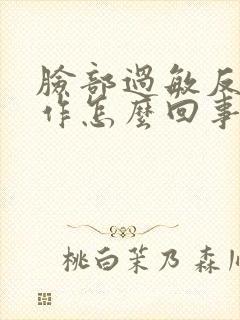 臉部過敏反
作怎麼回事
桃白茉乃 森川